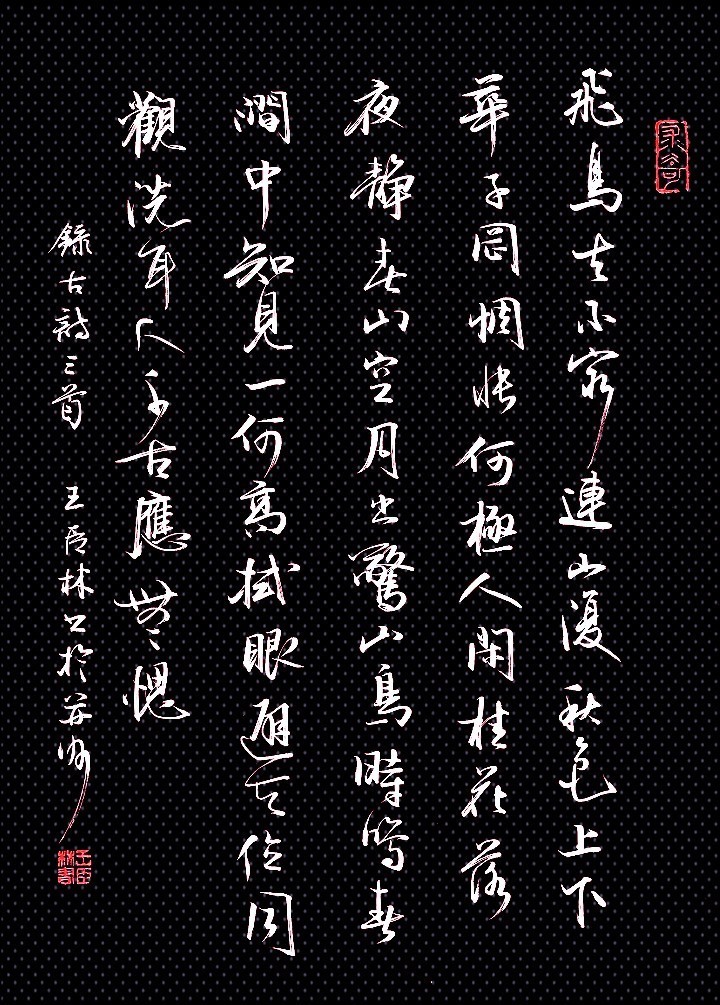 飛鳥去不窮連山復秋色上下
華子岡惆悵何極人閑桂花落
夜靜春山空月出驚山鳥時鳴春
澗中知見一何高拭眼避天位同
觀洗耳人千古應無愧
錄古詩三首 王臣林書於州
王臣林書